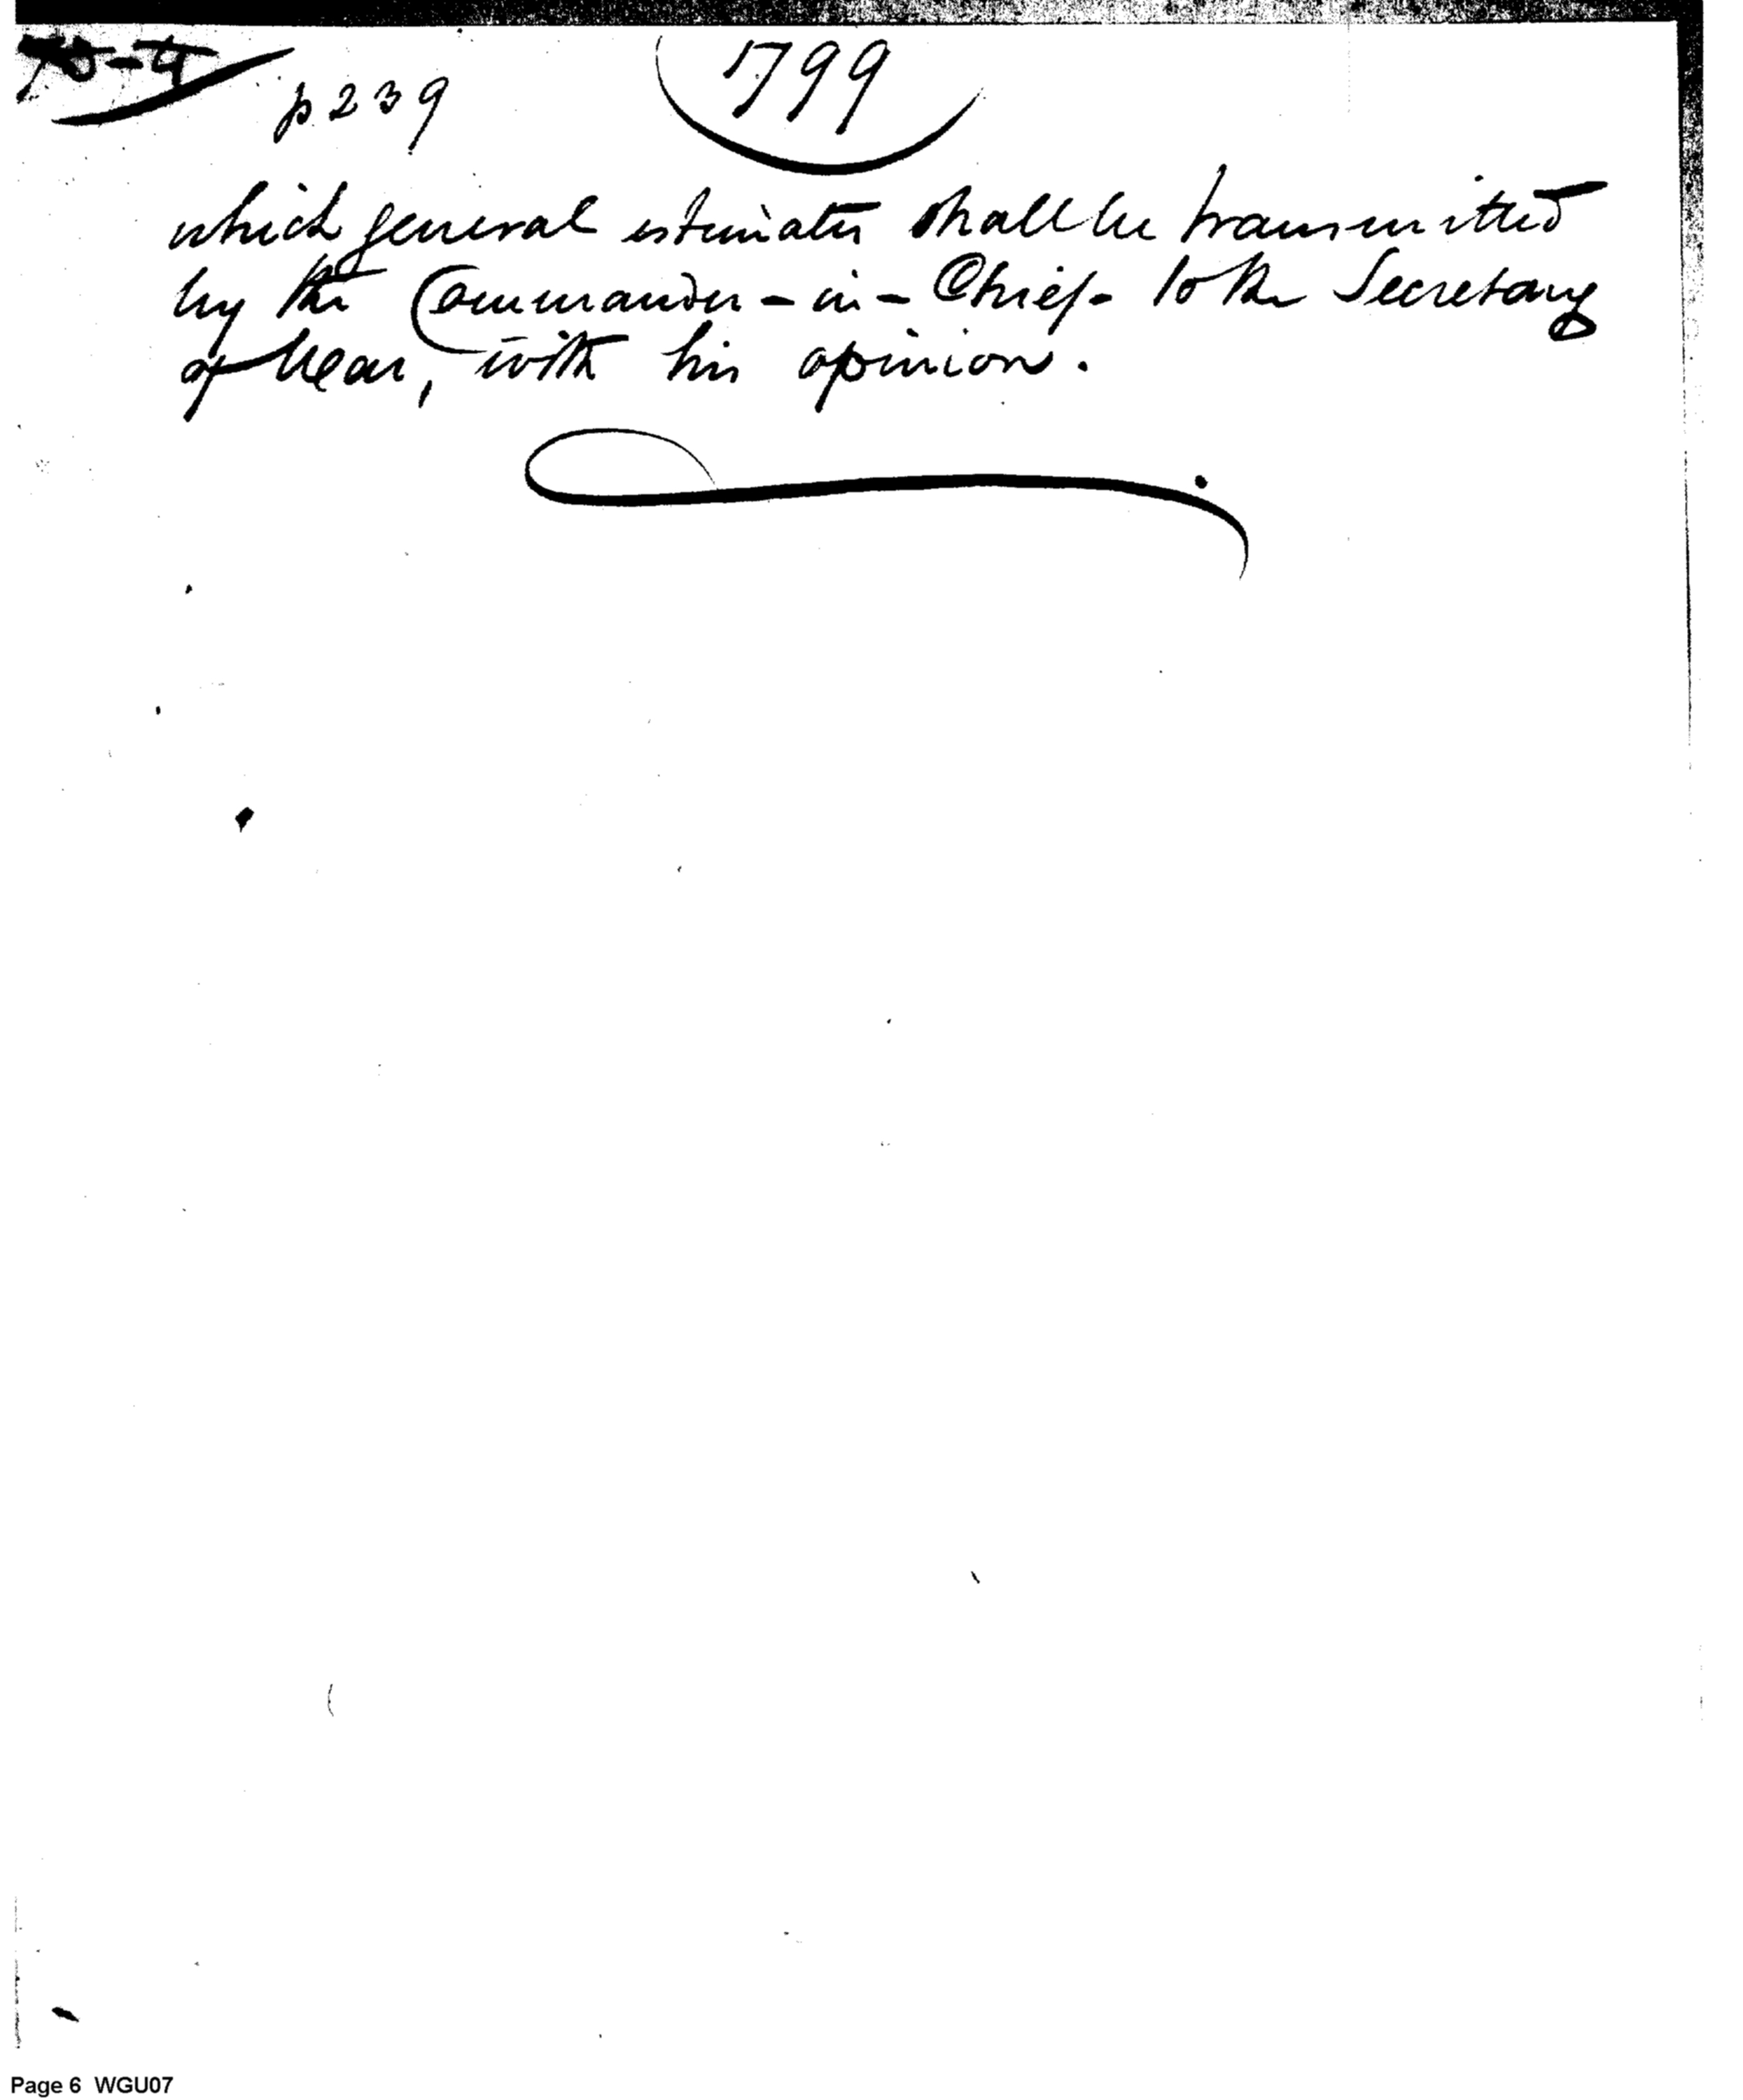 p 239
1799
which general estimates shall be transmitted
by the Commander-in-Chief- to the Secretary
of War, with his opinion.
Page 6 WGU07